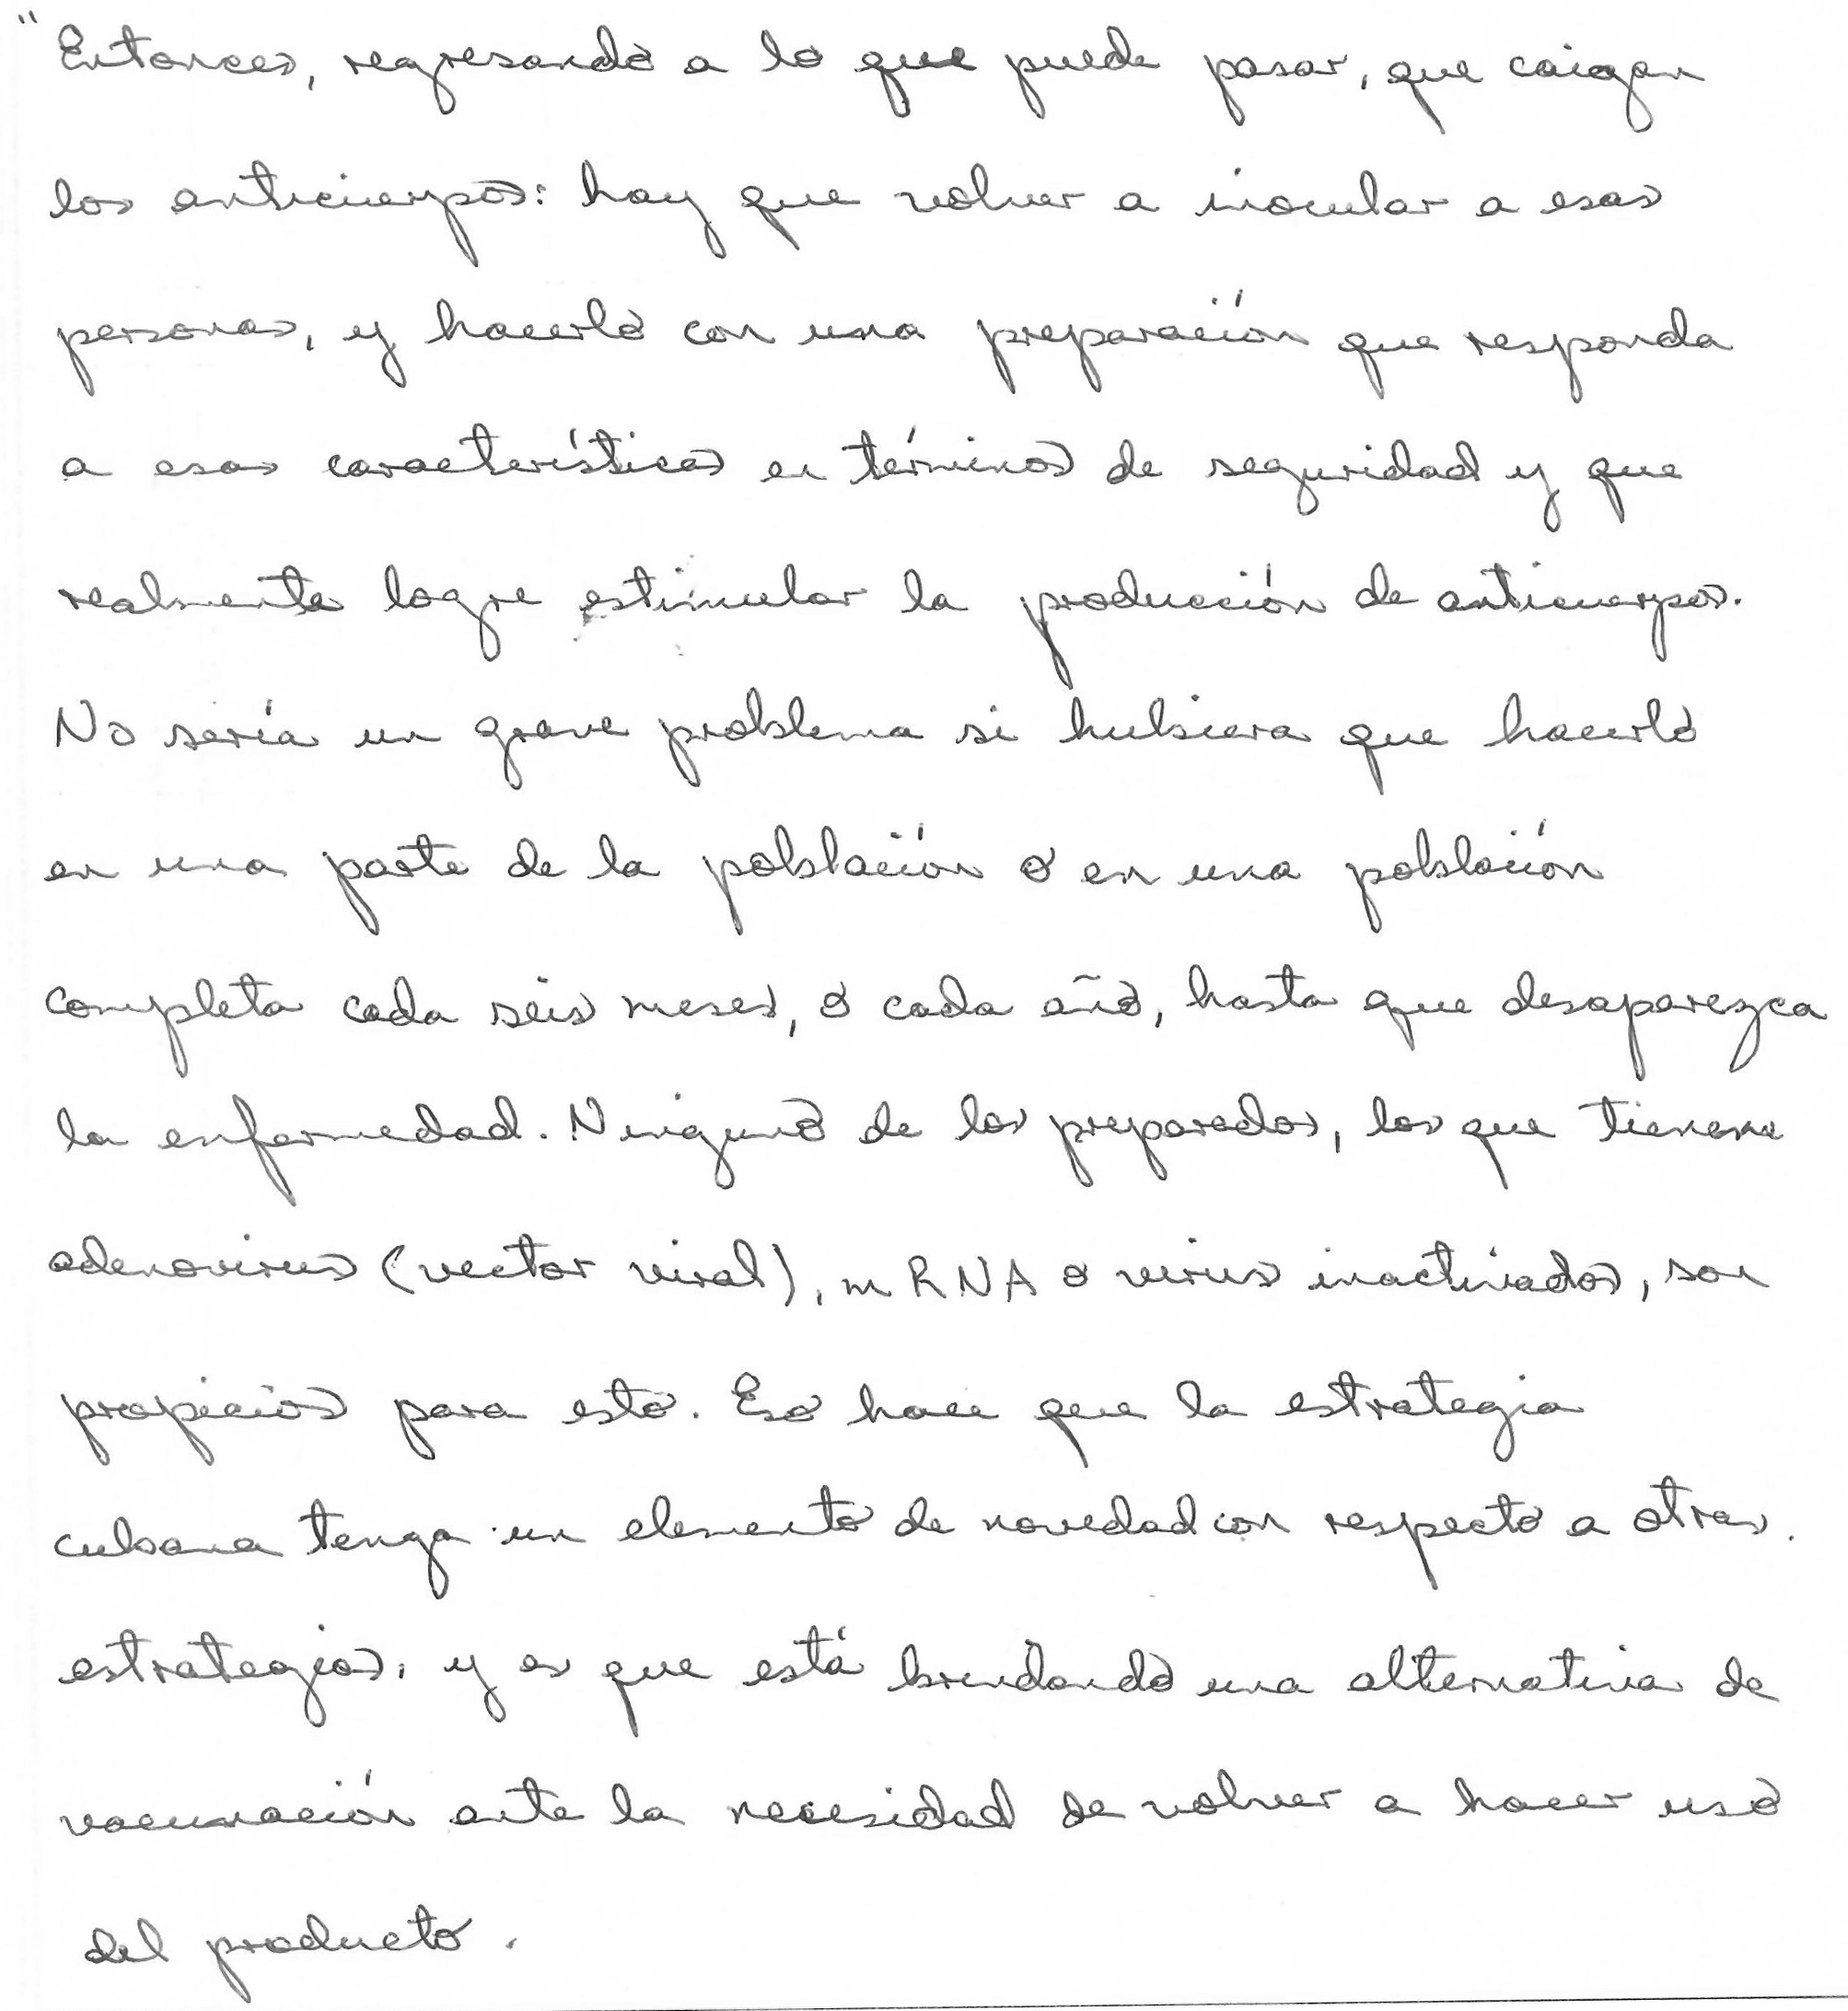 "Entonces, regresando a lo que puede pasar, que caigan
los anticuerpos: hay que volver a inocular a esas
personas, y hacerlo con una preparación que responda
a esas características en términos de seguridad y que
realmente logre estimular la producción de anticuerpos.
No sería un grave problema si hubiera que hacerlo
en una parte de la población o en una población
completa cada seis meses, o cada año, hasta que desaparezca
la enfermedad. Ninguno de los preparados, los que tienen
adenovirus (vector viral), mRNA o virus inactivados, son
propicios para esto. Eso hace que la estrategia
cubana tenga un elemento de novedad con respecto a otras.
estrategias, y es que está brindando una alternativa de
vacunación ante la necesidad de volver a hacer uso
del producto.